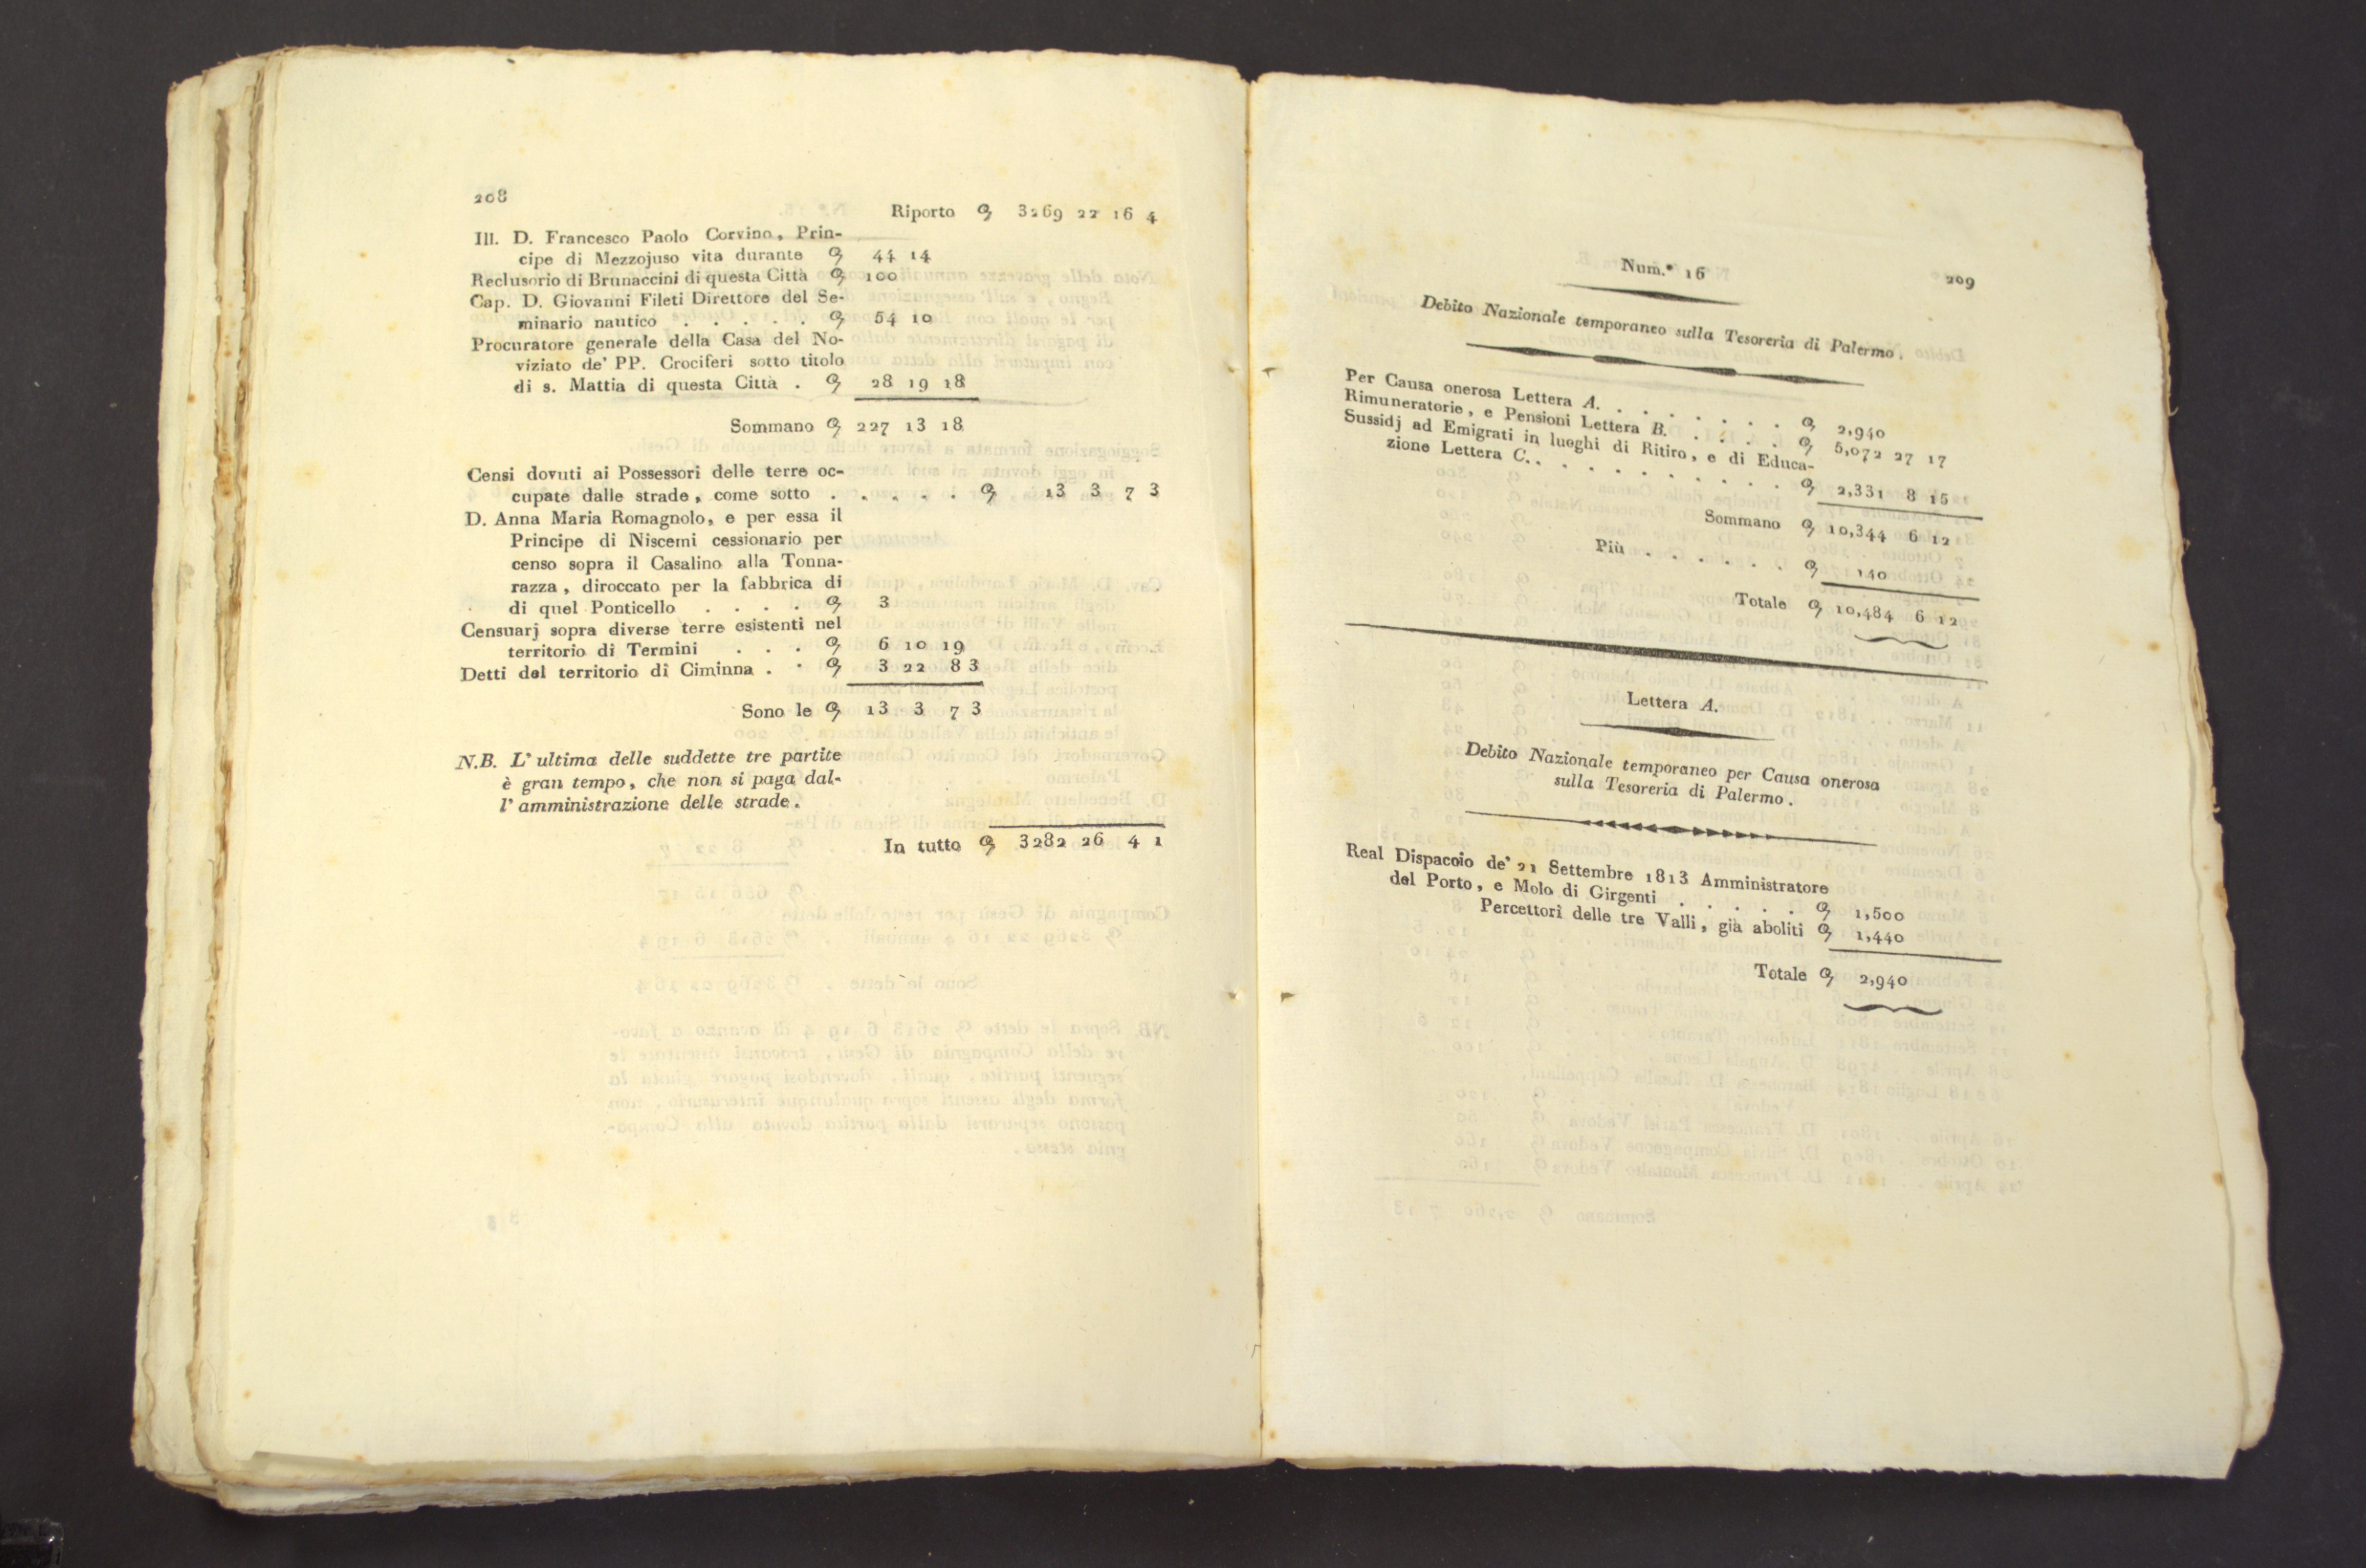 208
Riporto ꝯ 3269 22 16 4
Ill. D. Francesco Paolo Corvino, Prin-
cipe di Mezzojuso vita durante ꝯ 44 14
Reclusorio di Brunaccini di questa Città ꝯ 100
Cap. D. Giovanni Fileti Direttore del Se-
minario nautico . . . . . ꝯ 54 10
Procuratore generale della Casa del No-
viziato de' PP. Crociferi sotto titolo
di s. Mattia di questa Città . ꝯ 28 19 18
Sommano ꝯ 227 13 18
Censi dovuti ai Possessori delle terre oc-
cupate dalle strade, come sotto . . . . . ꝯ 13 3 7 3
D. Anna Maria Romagnolo, e per essa il
Principe di Niscemi cessionario per
censo sopra il Casalino alla Tonna-
razza, diroccato per la fabbrica di
di quel Ponticello . . . . ꝯ 3
Censuarj sopra diverse terre esistenti nel
territorio di Termini . . . ꝯ 6 10 19
Detti del territorio di Ciminna . . ꝯ 3 22 8 3
Sono le ꝯ 13 3 7 3
N.B. L'ultima delle suddette tre partite
è gran tempo, che non si paga dal-
l'amministrazione delle strade.
In tutto ꝯ 3282 26 4 1
Num.° 16
209
Debito Nazionale temporaneo sulla Tesoreria di Palermo.
Per Causa onerosa Lettera A. . . . . . . . ꝯ 2,940
Rimuneratorie, e Pensioni Lettera B. . . . . . ꝯ 5,072 27 17
Sussidj ad Emigrati in luoghi di Ritiro, e di Educa-
zione Lettera C. . . . . . . . . . . ꝯ 2,331 8 15
Sommano ꝯ 10,344 6 12
Più . . . . . . ꝯ 140
Totale ꝯ 10,484 6 12
Lettera A.
Debito Nazionale temporaneo per Causa onerosa
sulla Tesoreria di Palermo.
Real Dispaccio de' 21 Settembre 1813 Amministratore
del Porto, e Molo di Girgenti . . . . . ꝯ 1,500
Percettori delle tre Valli, già aboliti ꝯ 1,440
Totale ꝯ 2,940